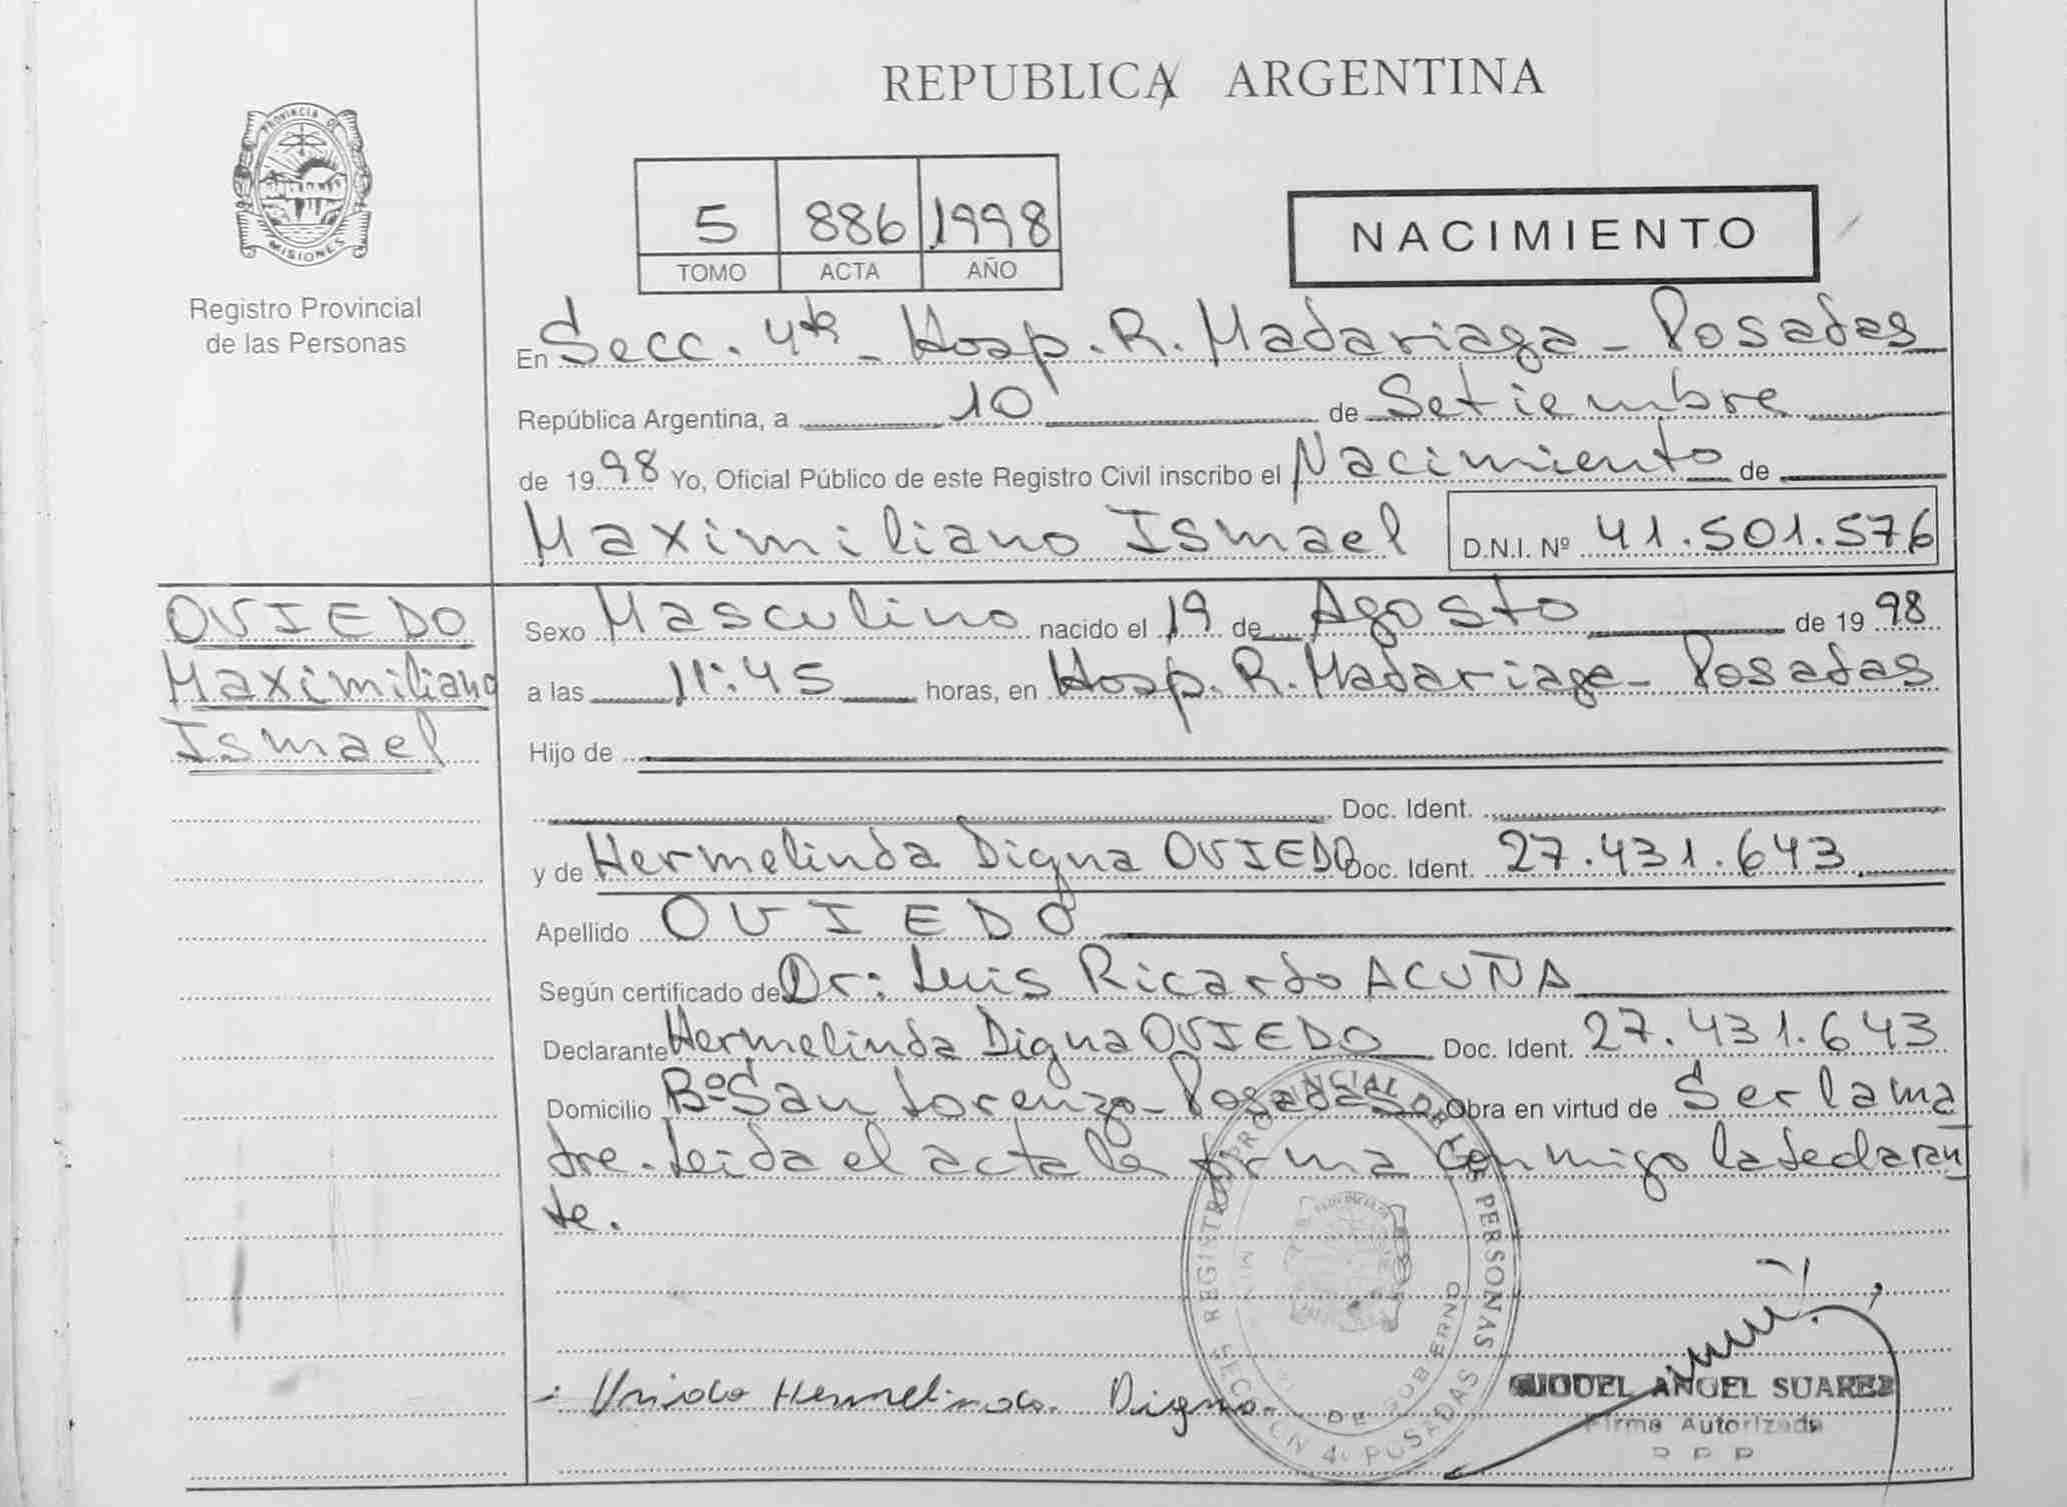 REPUBLICA ARGENTINA
PROVINCIA DE
MISIONES
Registro Provincial
de las Personas
5 886 1998
TOMO ACTA AÑO
NACIMIENTO
En Secc. 4ta - Hosp. R. Madariaga - Posadas
República Argentina, a 10 de Setiembre
de 1998 Yo, Oficial Público de este Registro Civil inscribo el Nacimiento de
Maximiliano Ismael D.N.I. Nº 41.501.576
OVIEDO
Maximiliano
Ismael
Sexo Masculino nacido el 19 de Agosto de 1998
a las 11:45 horas, en Hosp. R. Madariaga - Posadas
Hijo de
Doc. Ident.
y de Hermelinda Digna OVIEDO Doc. Ident. 27.431.643
Apellido OVIEDO
Según certificado de Dr: Luis Ricardo ACUÑA
Declarante Hermelinda Digna OVIEDO Doc. Ident. 27.431.643
Domicilio Bº San Lorenzo - Posadas Obra en virtud de Ser la ma
dre. Leida el acta la firma conmigo la declaran
te.
REGISTRO PROVINCIAL DE LAS PERSONAS
SECCION 4ª POSADAS
DE GOBIERNO
Hermelinda Digna
ANGEL SUAREZ
Firma Autorizada